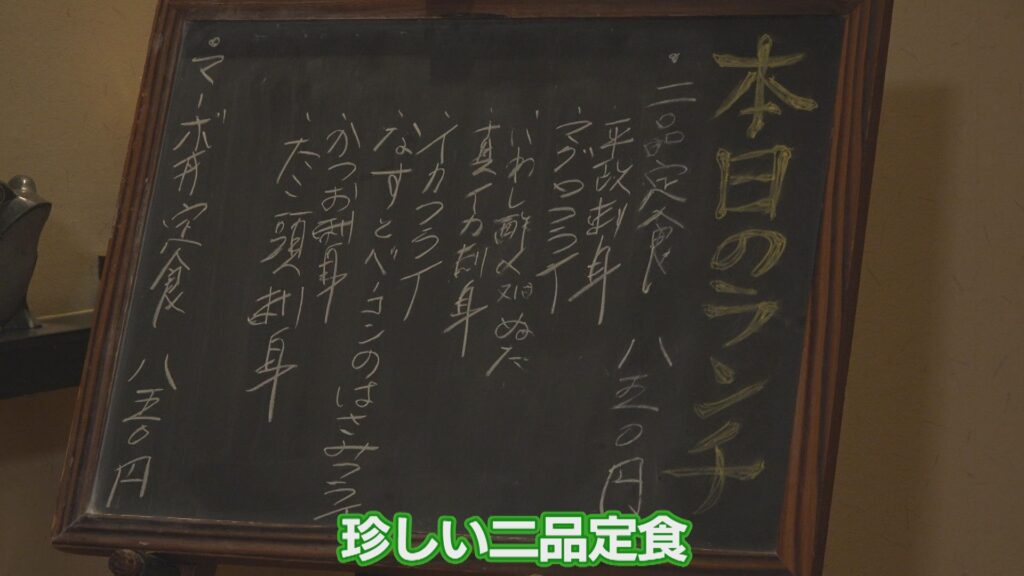 本日のランチ
。二品定食 八五〇円
・平政刺身
・マグロフライ
・いわし酢〆又はぬた
・真イカ刺身
・イカフライ
・なすとベーコンのはさみフライ
・かつお刺身
・たこ頭刺身
。マーボ丼定食 八五〇円
珍しい二品定食